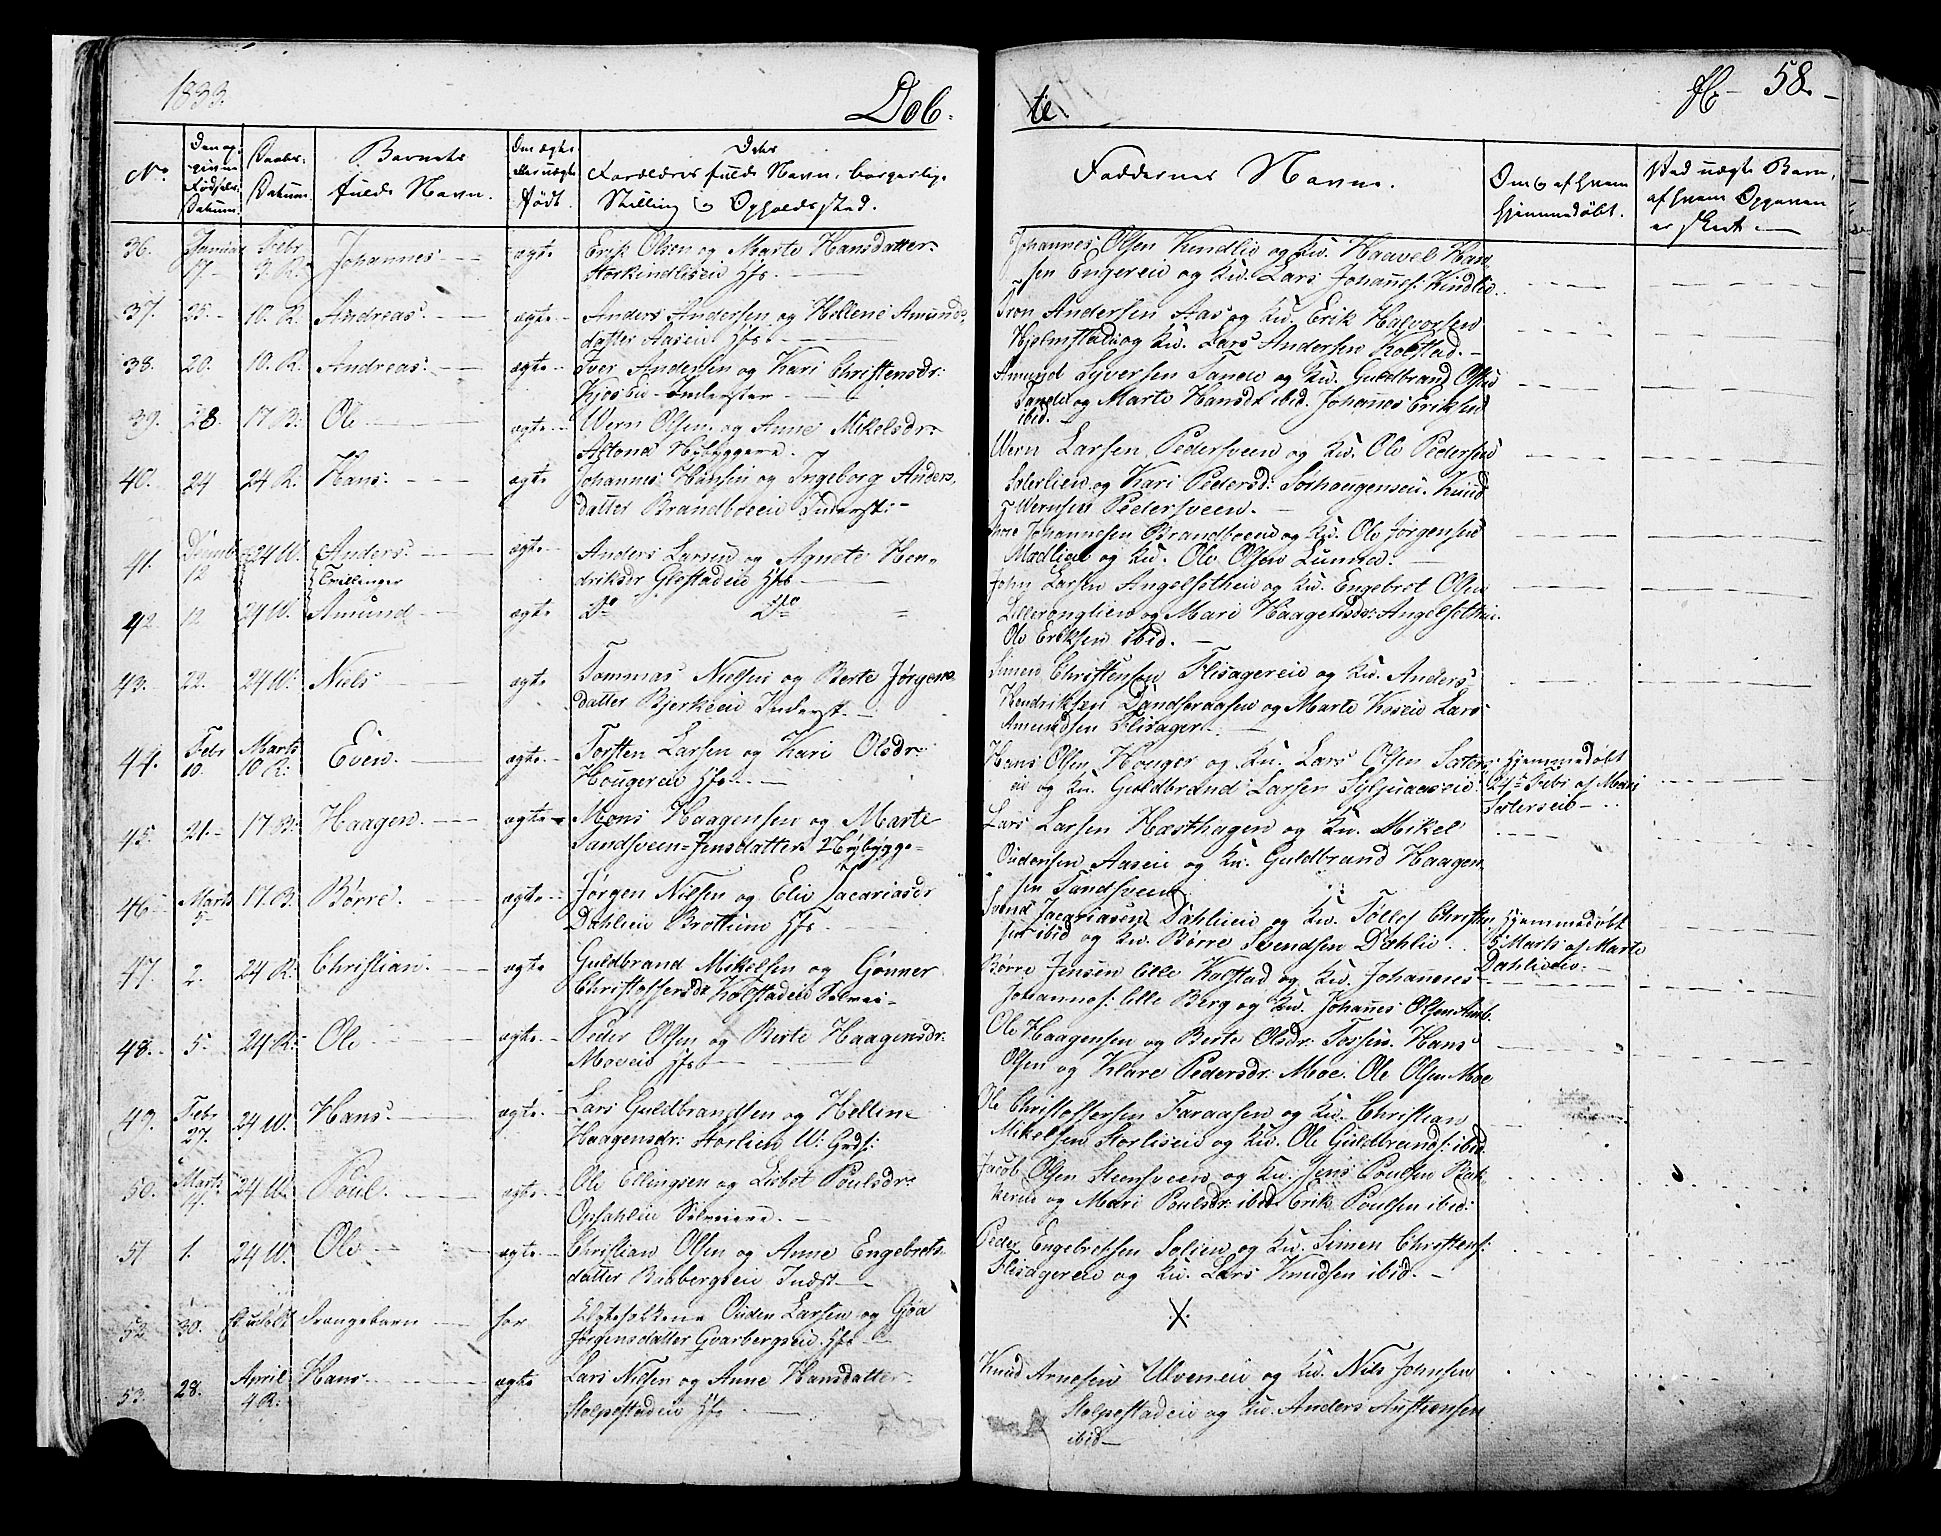 1833.
Døb-
te.
58.
No
Den op-
given
Fødsels
Datum.
Daabs-
Datum.
Barnets
fulde Navn.
Om ægte
eller uægte
født.
Dets
Forældres fulde Navn, borgerlige
Stilling og Opholdssted.
Faddernes Navne.
Om og af hvem
hjemmedøbt.
Ved uægte Børn,
af hvem Opgaven
er skeet.
36. Januar 17 Febr 3. R: Johannes ægte Erik Olsen og Marte Hansdatter
Storkindlieie Hfs.
Johannes Olsen Kindlie og Kv. Haavel Han-
sen Engereie og Kv. Lars Johannes: Kindlie.
37. 25. 10. R. Andreas. ægte Anders Andersen og Hellene Amunds-
datter Aaseie Hfs.
Iron Andersen Aas og Kv. Erik Halvorsen
Hjelmstadeie og Kv. Lars Andersen Kolstad.
38. 20. 10. R. Andreas. ægte Iver Andersen og Kari Christensdr:
Kjos Eie Inderster.
Amund Syversen Sande og Kv. Guldbrand Olsen
Sande og Marte Hansdr ibid. Johannes Eriksen
ibid.
39. 28. 17 B: Ole ægte Wern Olsen og Anne Mikelsdr.
Astona Nybyggere.
Wern Larsen Pedersveen og Kv. Ole Pedersen
Sæterlien og Kari Pedersd: Sorhaugenseie. Knud
Wernsen Pedersveen.
40. 24 24 R. Hans. ægte Johannes Hansen og Ingeborg Anders-
datter Brandboeeie Inderst:
Johannesen Brandboeeie og Kv. Ole Jørgensen
Mælliat og Kv. Ole Olsen Lunna.
41. 12 24 W. Anders. ægte Anders Larsen og Agnete Hen-
driksdr Glestadeie Hfs
Tvillinger
John Larsen Angelsetheie og Kv. Engebret Olsen
42. 12 24 W. Amund ægte Do Do
Lillerønglien og Mari Haagensdr: Angelsethei.
Ole Eriksen ibid.
43. 22. 24 W. Niels ægte Tommas Nielsen og Berte Jørgens-
datter Bjerkeeie Inderst.
Simen Christensen Flisagereie og Kv. Anders
Hendriksen Sandsraasen og Marte Koseie Lars
Amundsen Flisager.
44. Febr 10. Marts 10 R: Even. ægte Torsten Larsen og Kari Olsdr
Hougereie Hfs.
Hans Olsen Houger og Kv. Lars Olsen Sæters-
eie og Kv. Guldbrand Larsen Syljuaaseie.
Hjemmedøbt
24de Febr af Mari
Sæterseie
45. 21. 17 B: Haagen. ægte Mons Haagensen og Marte
Sandsveen Jensdatter Nybygge-
Lars Larsen Hæsthagen og Kv. Mikel
Oudensen Aaseie og Kv. Guldbrand Haagen-
sen Sandsveen
46. Marts 5 17. B. Børre. ægte Jørgen Nilsen og Elie Zacariasdr
Dahlieie Brøttum Hfs
Svend Zacariasen Dahlieie og Kv. Tollef Christen-
sen ibid og Kv. Børre Svendsen Dahlie.
Hjemmedøbt
5 Marts af Marte
Dahlieeie.
47. 2. 24 R. Christian. ægte Guldbrand Mikelsen og Gønner
Christoffersdr Kolstadeie Selvei-
Børre Jensen lille Kolstad og Kv. Johannes
Johannes: lille Berg og Kv. Johannes Olsen Amb.
48. 5. 24 R. Ole ægte Peder Olsen og Berte Haagensdr:
Moeeie Hfs
Ole Haagensen og Berte Olsdr: Torsen. Hans
Olsen og Klare Pedersdr: Moe. Ole Olsen Moe
49. Febr 27. 24 W. Hans ægte Lars Guldbrandsen og Helline
Haagensdr: Storlien W: Grds:
Ole Christoffersen Faraasen og Kv. Christian
Mikelsen Storlieeie og Kv. Ole Guldbrands: ibid.
50. Marts 24 W. Poul. ægte Ole Ellingsen og Lisbet Poulsdr
Opsahleie Selveiere.
Jacob Olsen Steensveen og Kv. Jens Poulsen Bak-
kereie og Mari Poulsdr: ibid Erik Poulsen ibid.
51 1. 24 W. Ole ægte Christian Olsen og Anne Engebrets-
datter Biebergseie Indst.
Peder Engebretsen Solien og Kv. Simen Christens:
Flisagereie og Kv. Lars Knudsen ibid.
52 30. Udøbt Drengebarn for Egtefolkene Ouden Larsen og Goa
Jørgensdatter Gvarbergseie Hfs
X.
53. 28. April 4 R: Hans ægte Lars Nilsen og Anne Hansdatter
Stolpestadeie Hfs
Knud Arnesen Ulveneie og Kv. Nils Johnsen
Stolpestadeie og Kv. Anders Austensen
ibid